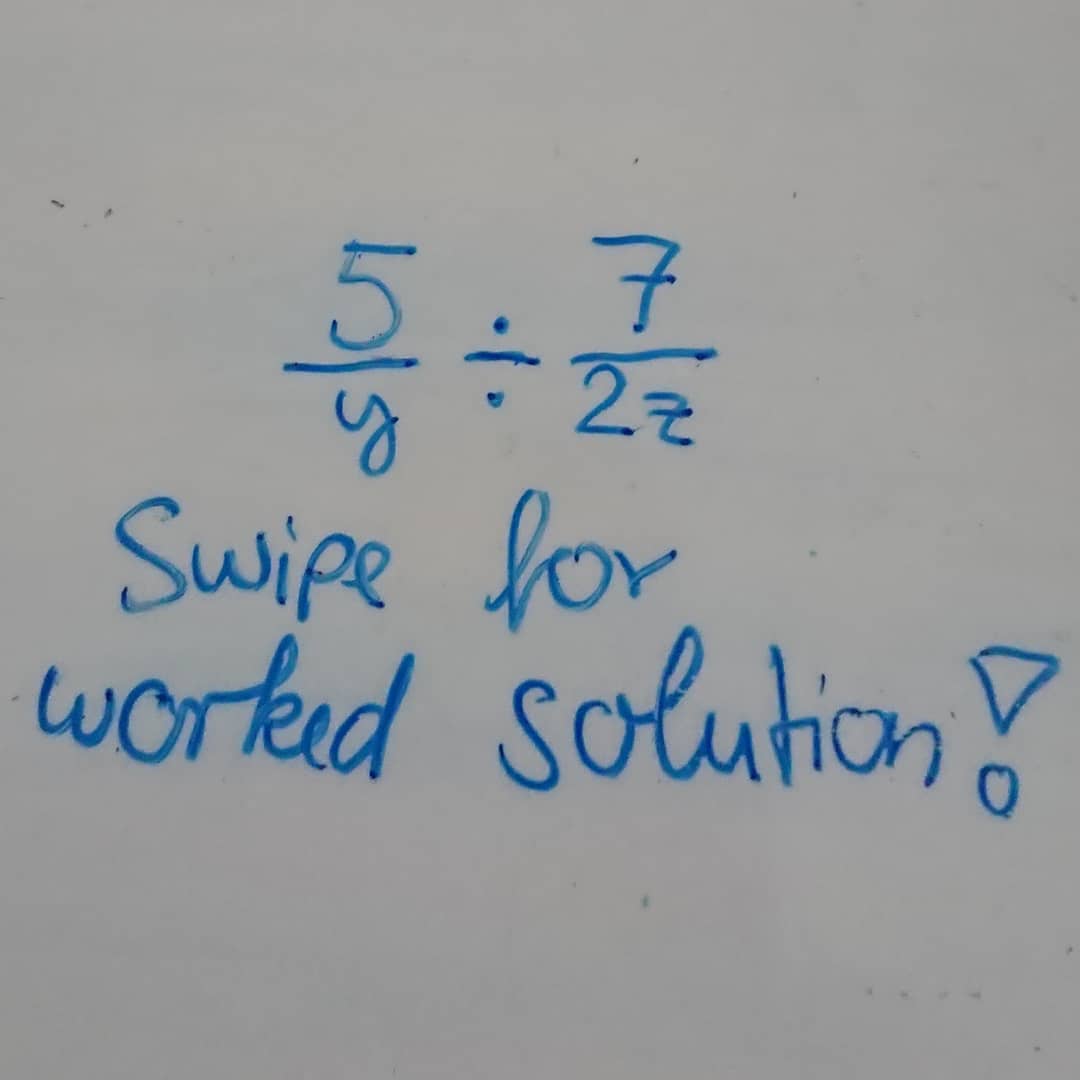 5/y ÷ 7/2z
Swipe for
worked solution!